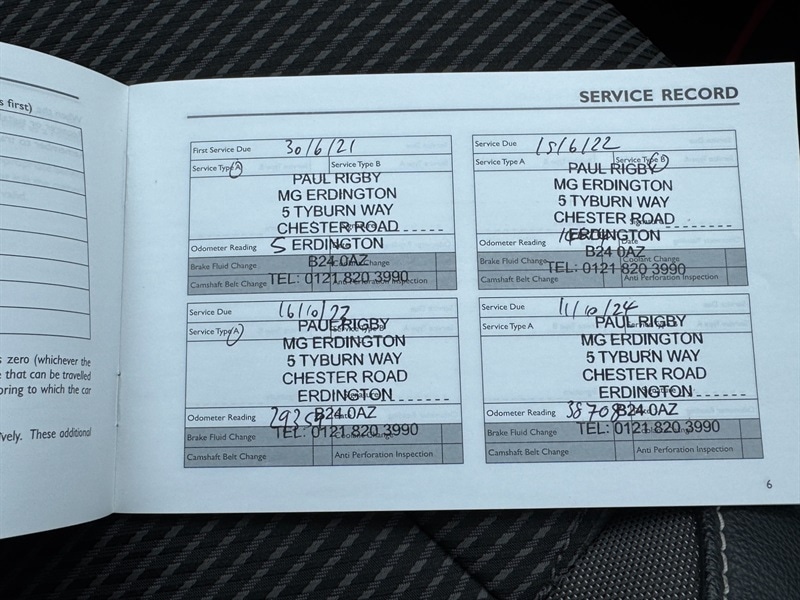 s first)
s zero (whichever the
e that can be travelled
oring to which the car
vely. These additional
SERVICE RECORD
First Service Due 30/6/21
Service Type A Service Type B
PAUL RIGBY
MG ERDINGTON
5 TYBURN WAY
CHESTER ROAD
Odometer Reading ERDINGTON
Brake Fluid Change B24 0AZ Coolant Change
TEL: 0121 820 3990
Camshaft Belt Change Anti Perforation Inspection
Service Due 15/6/22
Service Type A Service Type B
PAUL RIGBY
MG ERDINGTON
5 TYBURN WAY
CHESTER ROAD
Odometer Reading ERDINGTON Date
Brake Fluid Change B24 0AZ Coolant Change
TEL: 0121 820 3990
Camshaft Belt Change Anti Perforation Inspection
Service Due 16/10/22
Service Type A Service Type B
PAUL RIGBY
MG ERDINGTON
5 TYBURN WAY
CHESTER ROAD
ERDINGTON
Odometer Reading B24 0AZ
Brake Fluid Change TEL: 0121 820 3990 Coolant Change
Camshaft Belt Change Anti Perforation Inspection
Service Due 11/10/24
Service Type A
PAUL RIGBY
MG ERDINGTON
5 TYBURN WAY
CHESTER ROAD
ERDINGTON
Odometer Reading 38708 B24 0AZ
Brake Fluid Change TEL: 0121 820 3990 Coolant Change
Camshaft Belt Change Anti Perforation Inspection
6